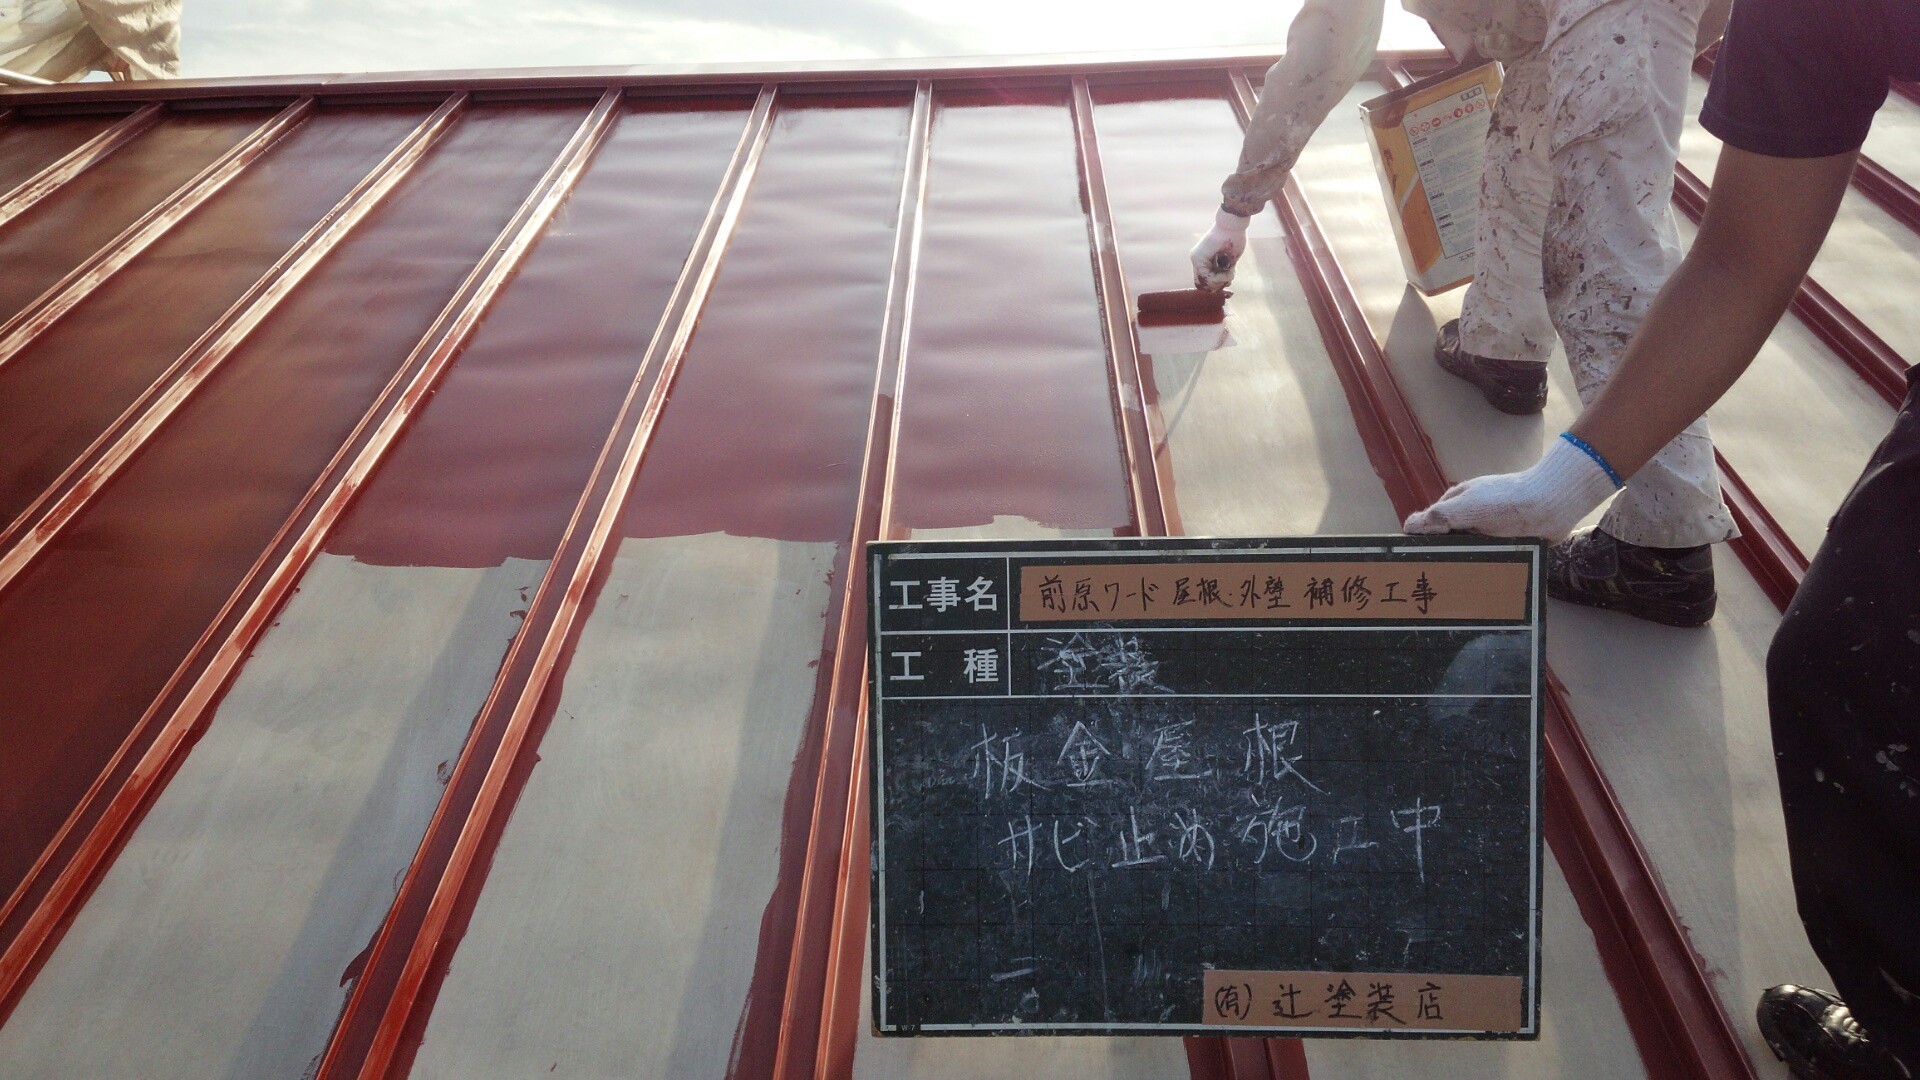 工事名 前原ワード 屋根・外壁 補修工事
工種 塗装
板金屋根
サビ止め施工中
(有)辻塗装店